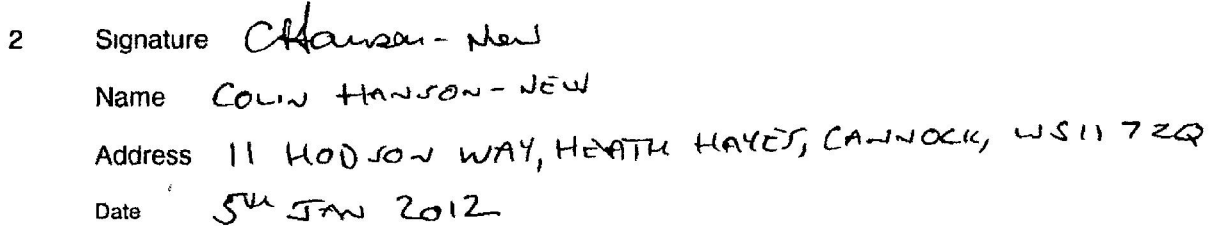 2 Signature CHanson-New
Name COLIN HANSON-NEW
Address 11 HODSON WAY, HEATH HAYES, CANNOCK, WS11 7ZQ
Date 5th JAN 2012